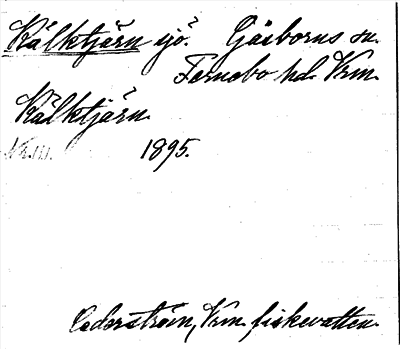 Kälktjärn sjö. Gåsborns sn.
Fernebo hd. Vrm.
Kälktjärn
1895.
Cederström, Vrm. fiskevatten.